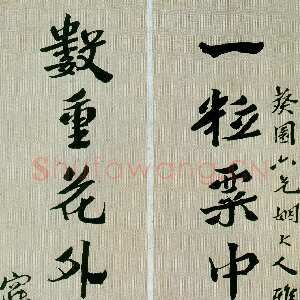 葵園六兄姻大人雅
一粒粟中
數重花外
Shufawang.cn